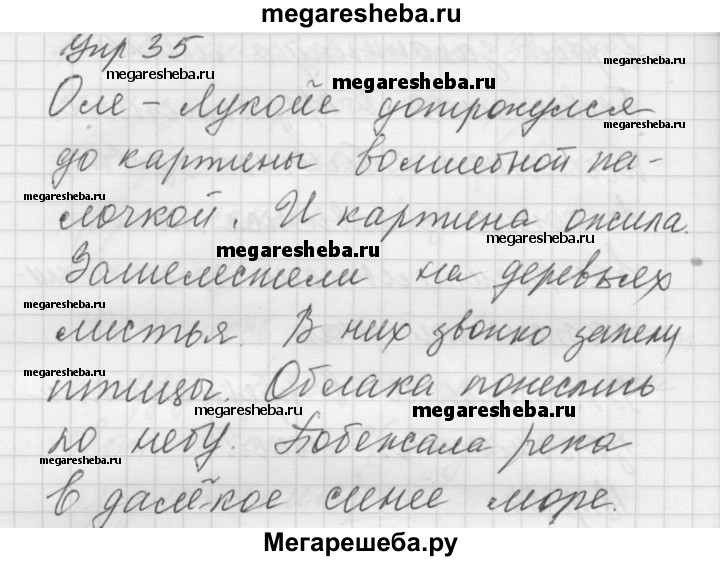 megaresheba.ru
Упр 35
megaresheba.ru
megaresheba.ru
Оле-Лукойе дотронулся
megaresheba.ru
до картины волшебной па-
megaresheba.ru
лочкой. И картина ожила.
megaresheba.ru
megaresheba.ru
Зашелестели на деревьях
листья. В них звонко запели
megaresheba.ru
птицы. Облака понеслись
megaresheba.ru
megaresheba.ru
по небу. Побежала река
megaresheba.ru
в далёкое синее море.
Мегарешеба.ру